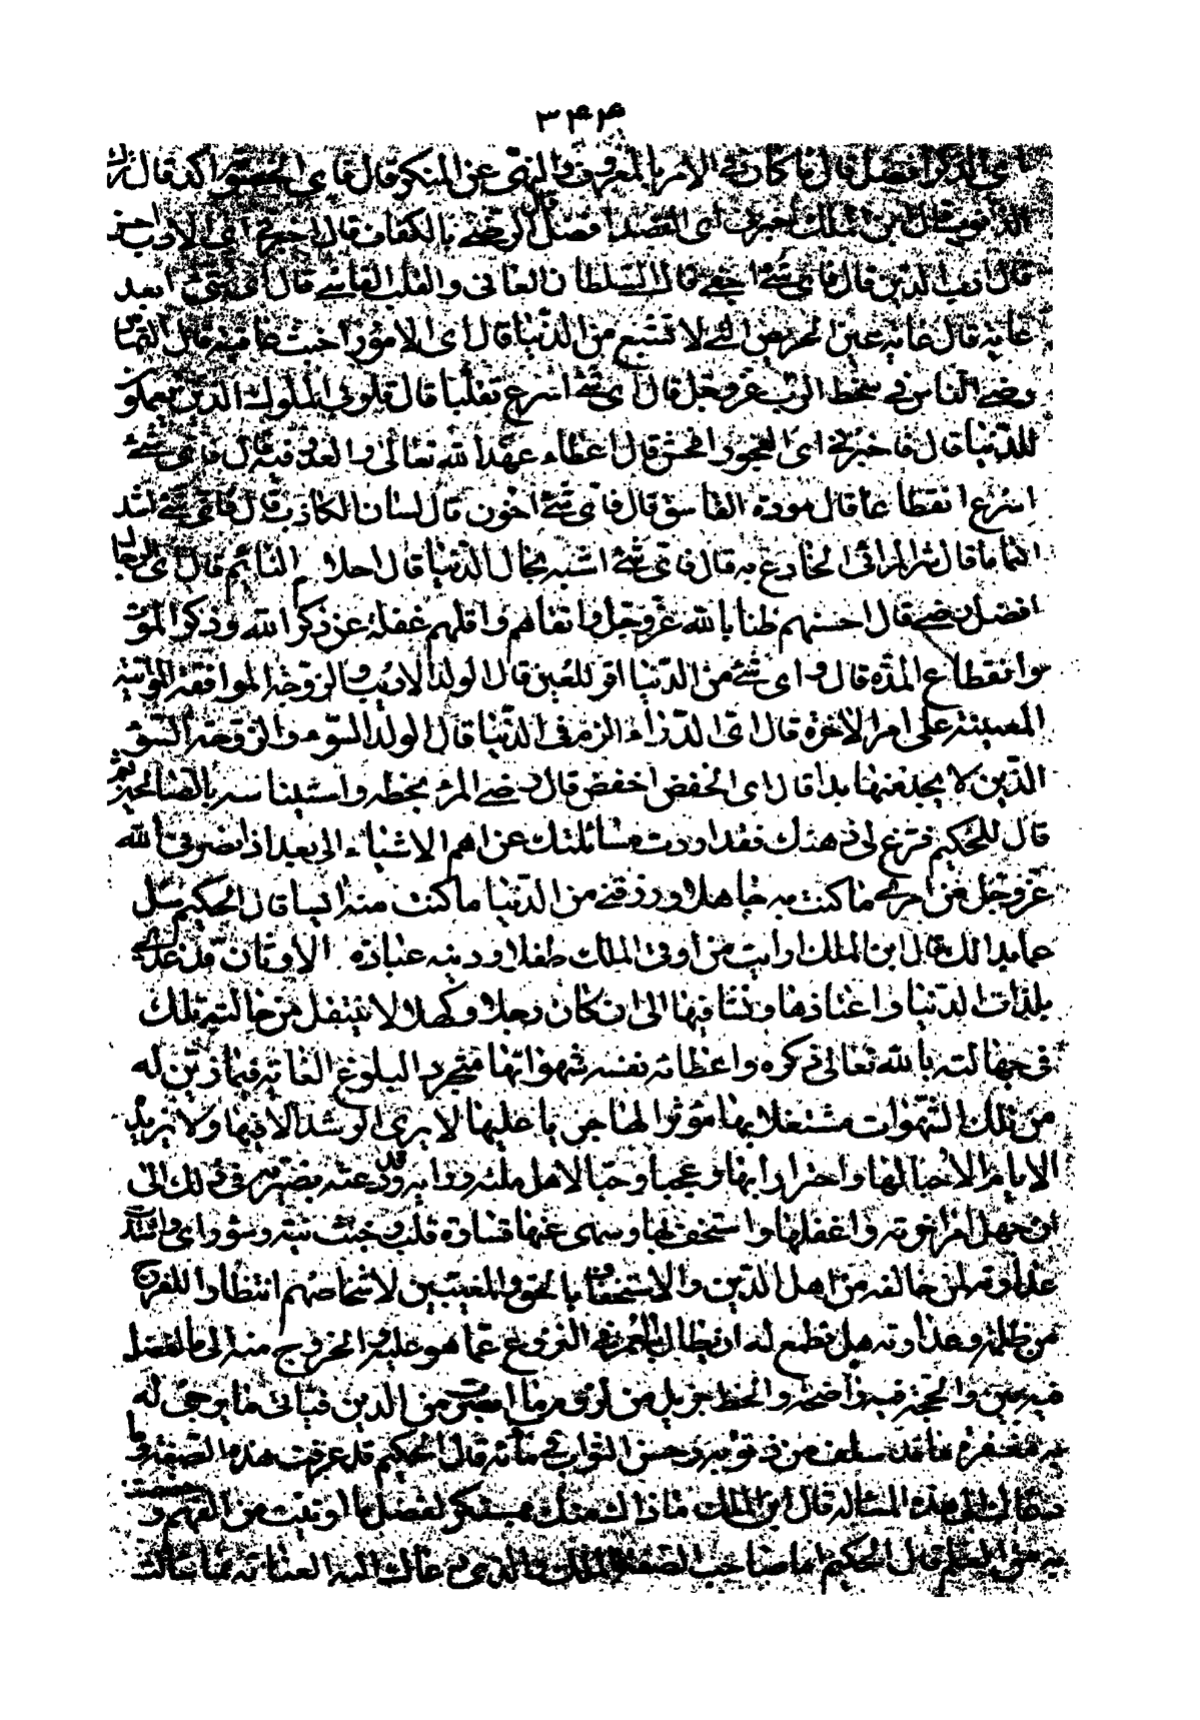 ٣٤٤
اى الذكر افضل قال ما كان فى الامر بالمعروف والنهى عن المنكر قال فاى الخصوم الد قال
الذنوب قال ابن الملك اخبرنى اى القصد افضل قال الرضى بالكفاف قال اخبرنى اى الادب احسن
قال ادب الدين قال فاى شئ اجفى قال السلطان العاتى والقلب القاسى قال اى شئ ابعد
غاية قال غاية عين الحريص التى لا تشبع من الدنيا قال اى الامور اخبث عاقبة قال التماس
رضى الناس فى سخط الرب عز وجل قال اى شئ اسرع تقلبا قال قلوب الملوك الذين يعملون
للدنيا قال فاخبرنى اى الفجور افحش قال اعطاء عهد الله تعالى والغدر فيه قال فاى شئ
اسرع انقطاعا قال مودة الفاسق قال فاى شئ اخون قال لسان الكاذب قال فاى شئ اشد
اكتتاما قال شر المرائى الخادع به قال فاى شئ اشبه بحال الدنيا قال احلام النائم قال اى الرجال
افضل رضى قال احسنهم ظنا بالله عز وجل واتقاهم واقلهم غفلة عن ذكر الله وذكر الموت
وانقطاع المدة قال و اى شئ من الدنيا اقر للعين قال الولد الاديب والزوجة الموافقة المواتية
المعينة على امر الاخرة قال اى الداء الزم فى الدنيا قال الولد السوء والزوجة السوء
الذين لا يجد عنهما بدا قال اى الخفض اخفض قال رضى المرء بحظه واستيناسه بالصالحين ثم
قال للحكيم فرغ لى ذهنك فقد اردت مسائلتك عن اهم الاشياء الى بعد اذ بصرنى الله
عز وجل عن امرى ما كنت به جاهلا ورزقنى من الدنيا ما كنت منه ايسا قال الحكيم سل
عما بدا لك قال ابن الملك ارايت من اوتى الملك طفلا ودينه عبادة الاوثان قد غذى
بلذات الدنيا واعتادها ونشا فيها الى ان كان رجلا وكهلا لا ينتقل من حالته تلك
فى جهالته بالله تعالى ذكره واعطائه نفسه شهواتها متجردا لبلوغ الغاية فيما زين له
من تلك الشهوات مشتغلا بها مؤثرا لها جريا عليها لا يرى الرشد الا فيها ولا تزيده
الايام الا حبا لها واغترارا بها وعجبا وحبا لاهل ملته ورايه وقد دعته بصيرته فى ذلك الى
ان جهل امر اخرته واغفلها واستخف بها وسهى عنها قساوة قلب وخبث نية وسوء راى واشتدت
عداوته لمن خالفه من اهل الدين والاستخفا بالحق والمغيبين لاشخاصهم انتظارا للفرج
من ظلمه وعداوته هل يطمع له ان يطال له العمر فى النزوع عما هو عليه والخروج منه الى ما الفضل
فيه بين والحجة فيه واضحة والحظ جزيل من لزوم ما ابصر من الدين فياتى ما يرجى له
به مغفرة ما قد سلف من ذنوبه وحسن الثواب فى مآبه قال الحكيم قد عرفت هذه الصفة وما
دعاك الى هذه المسالة قال ابن الملك ما ذاك منك بمستنكر لفضل ما اوتيت من الفهم و
به من العلم قال الحكيم اما صاحب الصفة فالملك والذى دعاك اليه العناية بما سالت